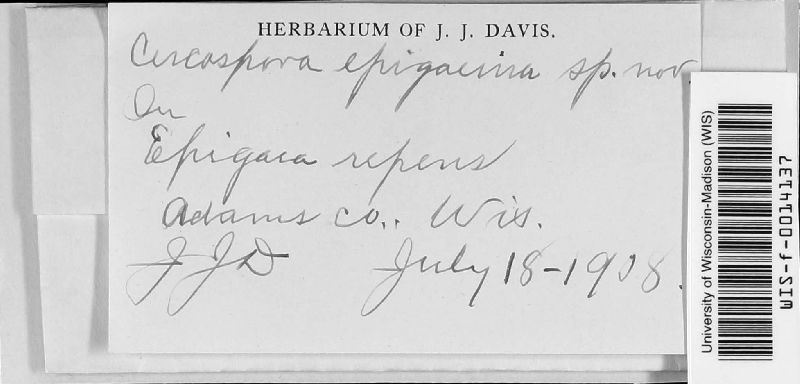 HERBARIUM OF J. J. DAVIS.
Cercospora epigaeina sp. nov.
On
Epigaea repens
Adams co., Wis.
JJD July 18-1908.
University of Wisconsin-Madison (WIS)
WIS-f-0014137